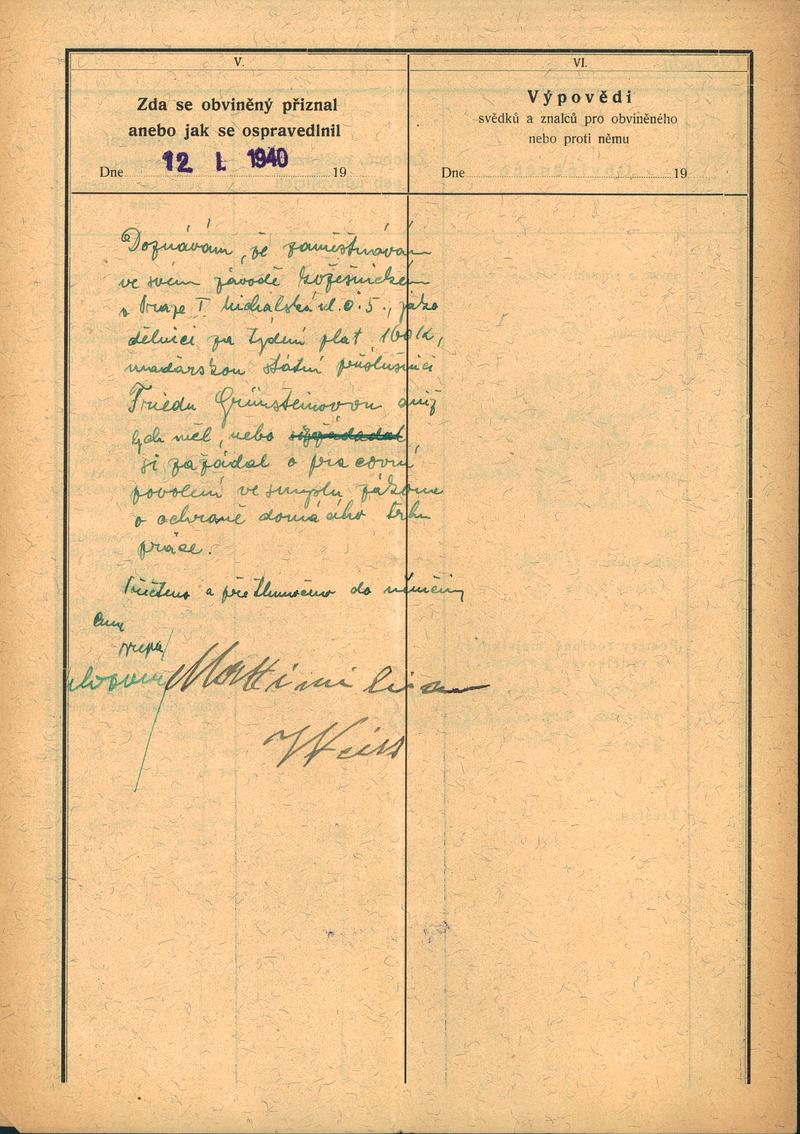 V.
Zda se obviněný přiznal
anebo jak se ospravedlnil
Dne 12 I. 1940 19
VI.
Výpovědi
svědků a znalců pro obviněného
nebo proti němu
Dne 19
Doznávám, že zaměstnávám
ve svém závodě kožešnickém
v Praze I Michalská ul. č. 5., jako
dělnici za týdenní plat 160 K,
maďarskou státní příslušnici
Friedu Grünsteinovou aniž
bych měl, nebo
si zažádal o pracovní
povolení ve smyslu zákona
o ochraně domácího trhu
práce.
Přečteno a přetlumočeno do němčiny
Maximilian
Weiss